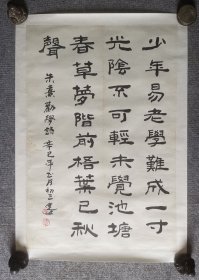 少年易老學難成一寸
光陰不可輕未覺池塘
春草夢階前梧葉已秋
聲
朱熹勸學詩 辛巳年正月初三